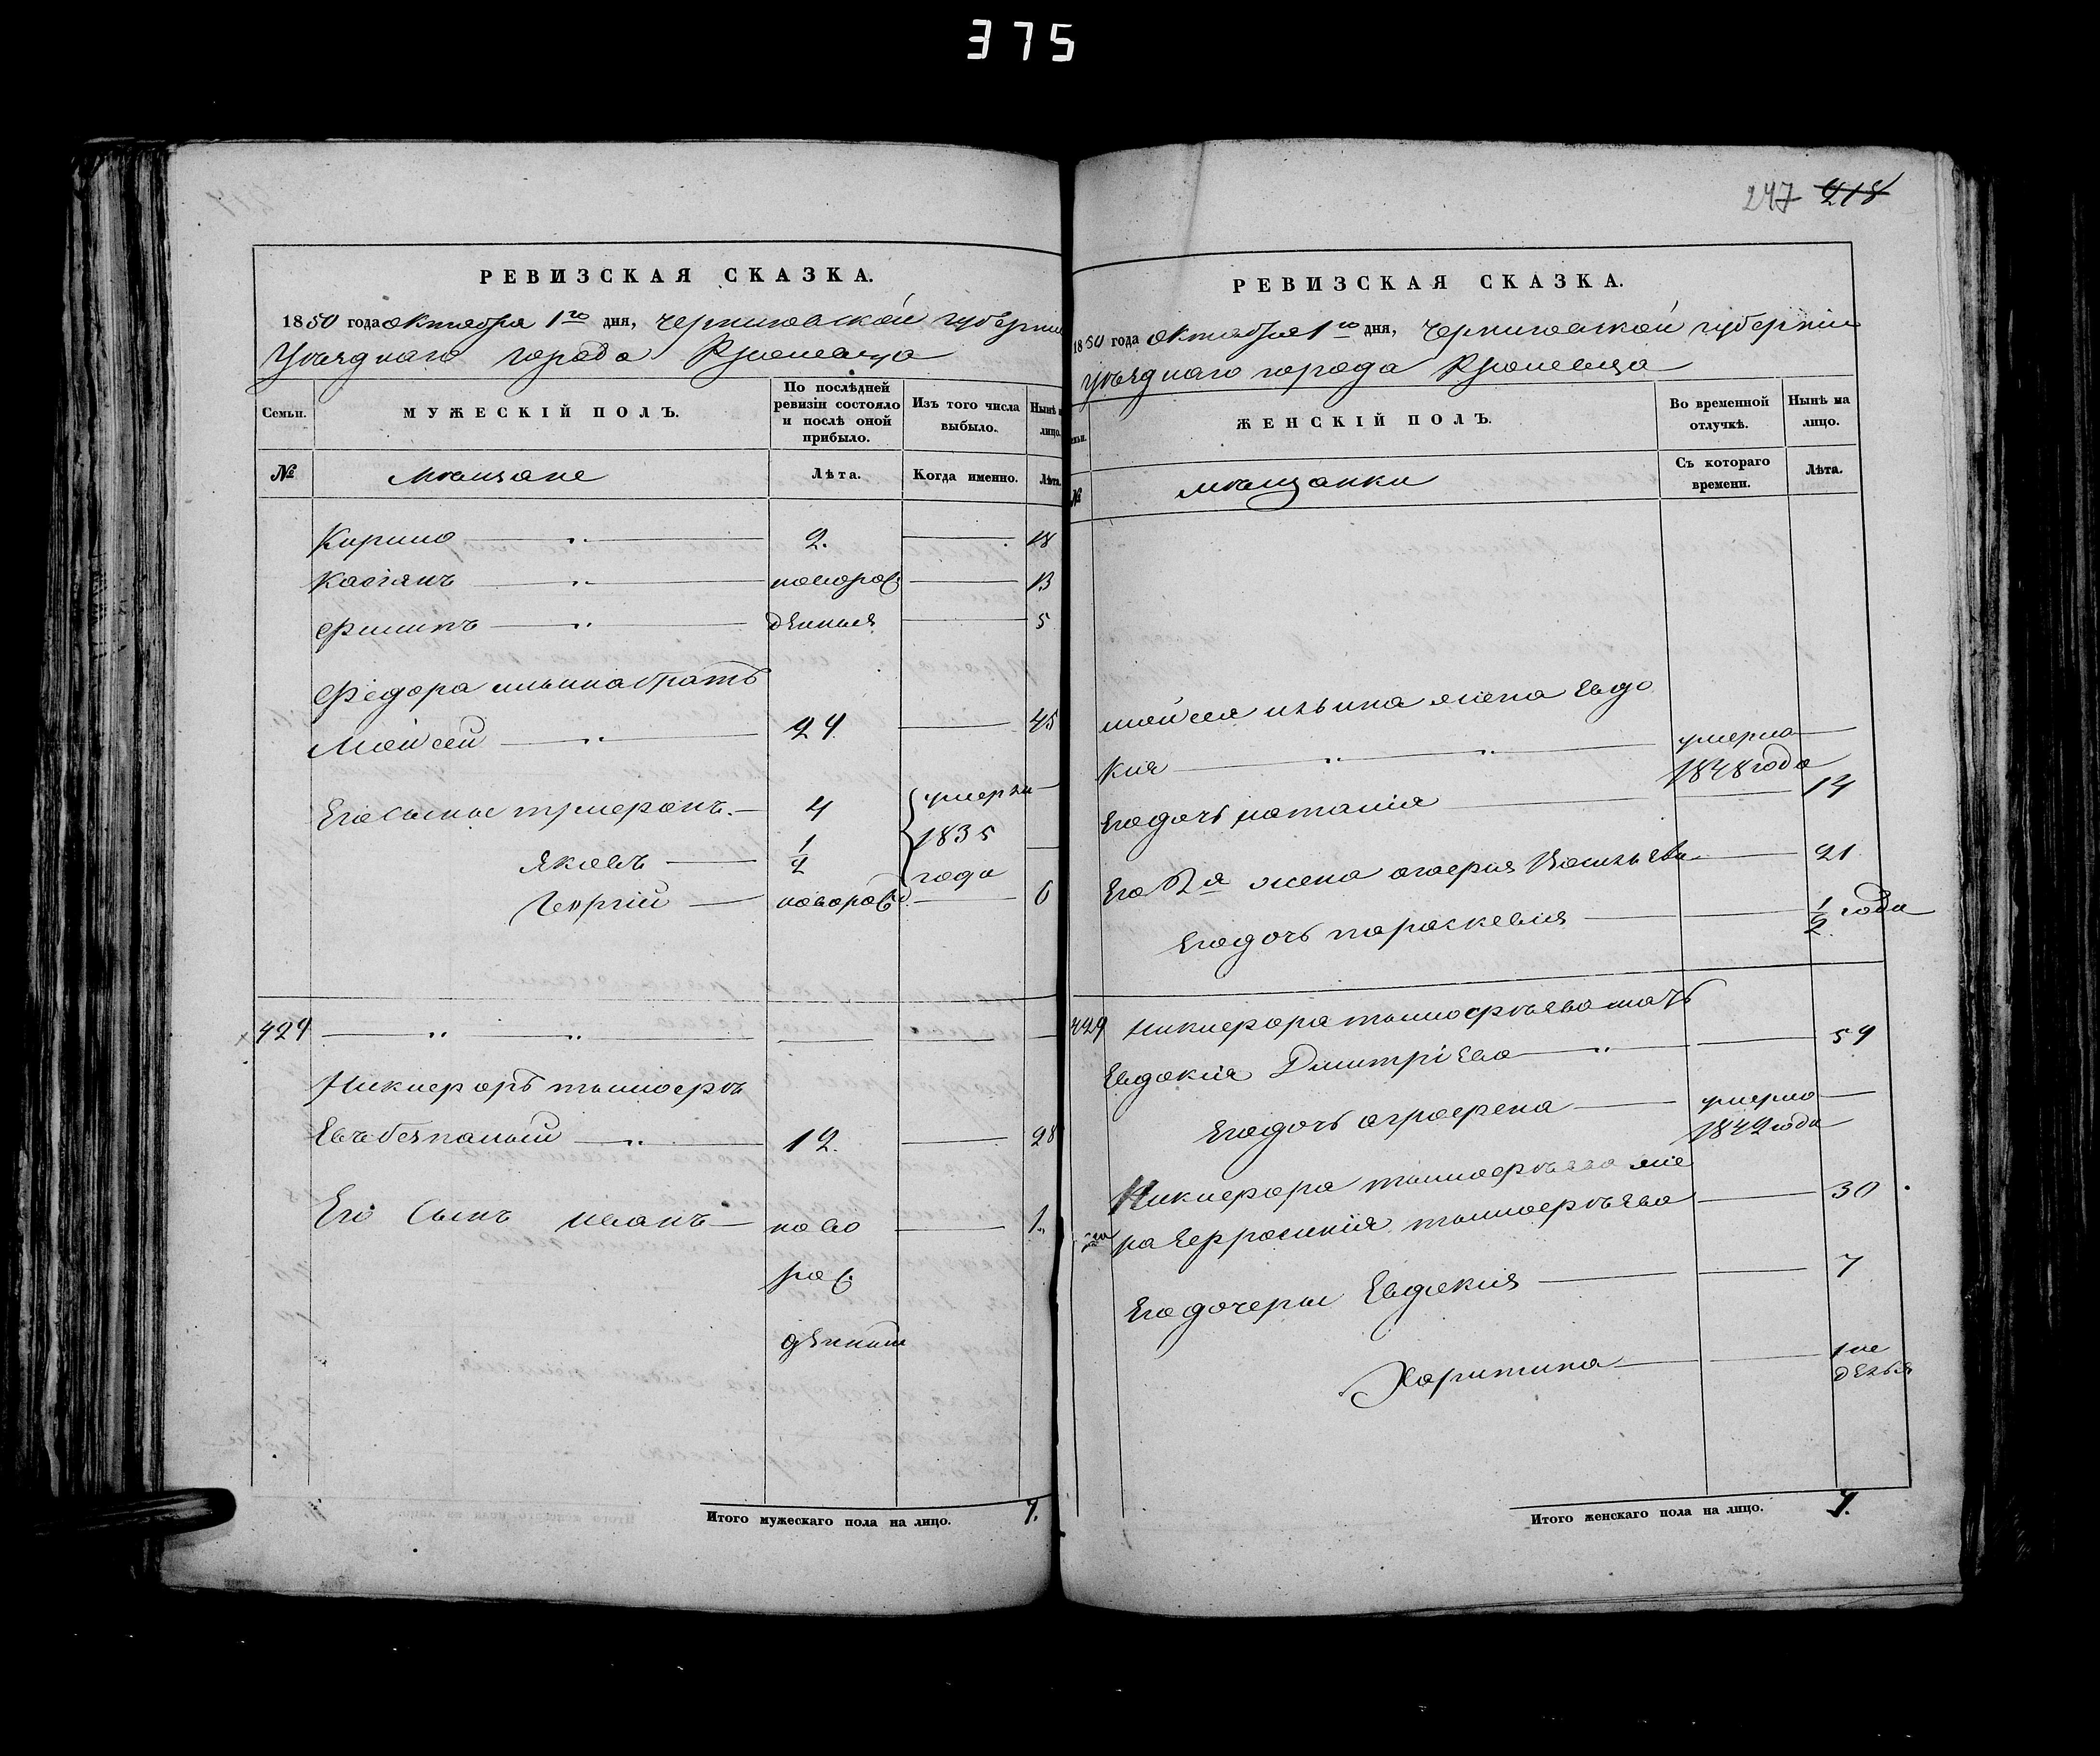 375
РЕВИЗСКАЯ СКАЗКА.
1850 года октября 1го дня, Черниговской губерніи
Уѣзднаго города Кролевца
Семьи.
МУЖЕСКІЙ ПОЛЪ.
По послѣдней ревизіи состояло и послѣ оной прибыло.
Изъ того числа выбыло.
Нынѣ на лицо.
№
мѣщане
Лѣта.
Когда именно.
Лѣта.
Кирило 2. 18
Касіянъ новорож 13
Филипъ денныя 5
Федора ильина братъ
Моисей 29 45
Его сынъя 4 умерли
1835
Яковъ 1/2
года
Георгій новорожд. 6
429
Никифоръ тимофѣ
Евъ безпалый 12. 28
Его сынъ иванъ ново 1.
рож
денный
Итого мужескаго пола на лицо. 7.
247 218
РЕВИЗСКАЯ СКАЗКА.
1850 года октября 1го дня, Черниговской губерніи
уѣзднаго города Кролевца
ЖЕНСКІЙ ПОЛЪ.
Во временной отлучкѣ.
Нынѣ на лицо.
№
мѣщанки
Съ котораго времени.
Лѣта.
моисея ильина жена Евдо
кия умерла
1848 года
Его дочь наталія 14
Его 2я жена агафия Васильева 21
Его дочь параскевия 1/2 года
429 Никифора тимофѣева мать
Евдокия Дмитріева 59
Его дочь аграфена умерла
1842 года
Никифора тимофѣева же
на Ефросинія тимофѣева 30
Его дочеры Евдокия 7
Харитина 1 не
делья
Итого женскаго пола на лицо. 7.